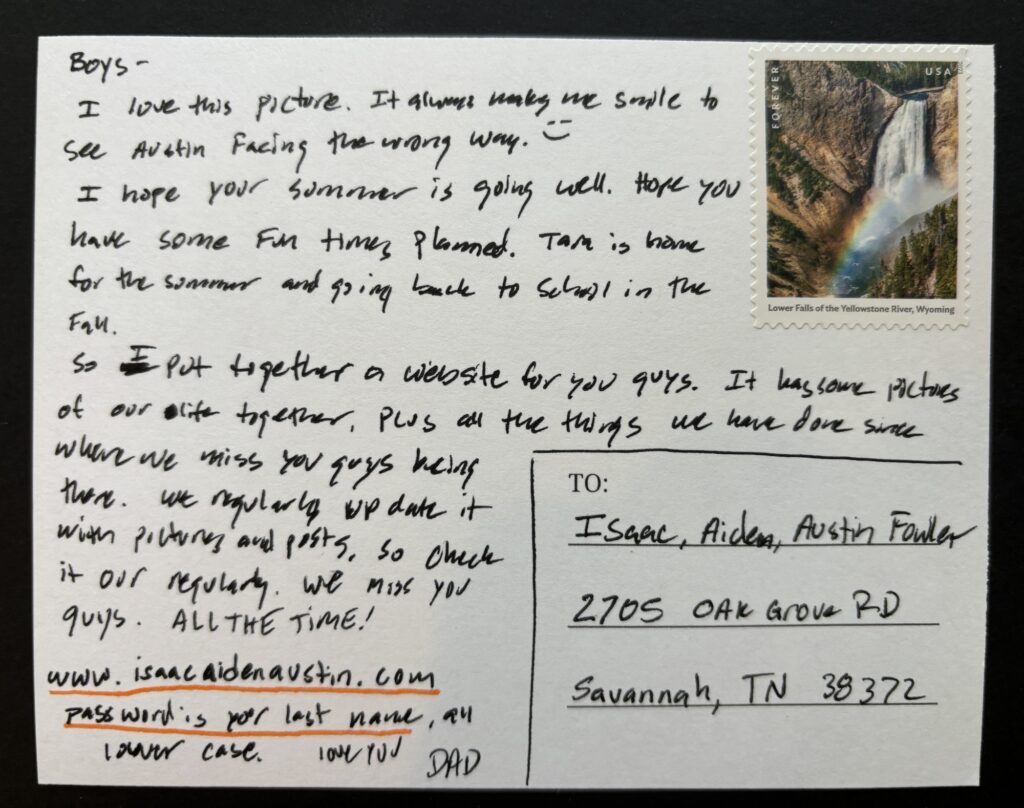 Boys-
I love this picture. It always makes me smile to
see Austin facing the wrong way.
I hope your summer is going well. Hope you
have some fun times planned. Tara is home
for the summer and going back to school in the
Fall.
So I put together a website for you guys. It has some pictures
of our life together, plus all the things we have done since
where we miss you guys being
there. We regularly update it
with pictures and posts, so check
it our regularly. We miss you
guys. ALL THE TIME!
www.isaacaidenaustin.com
password is your last name, all
lower case. love you
DAD
FOREVER
USA
Lower Falls of the Yellowstone River, Wyoming
TO:
Isaac, Aiden, Austin Fowler
2705 OAK Grove RD
Savannah, TN 38372